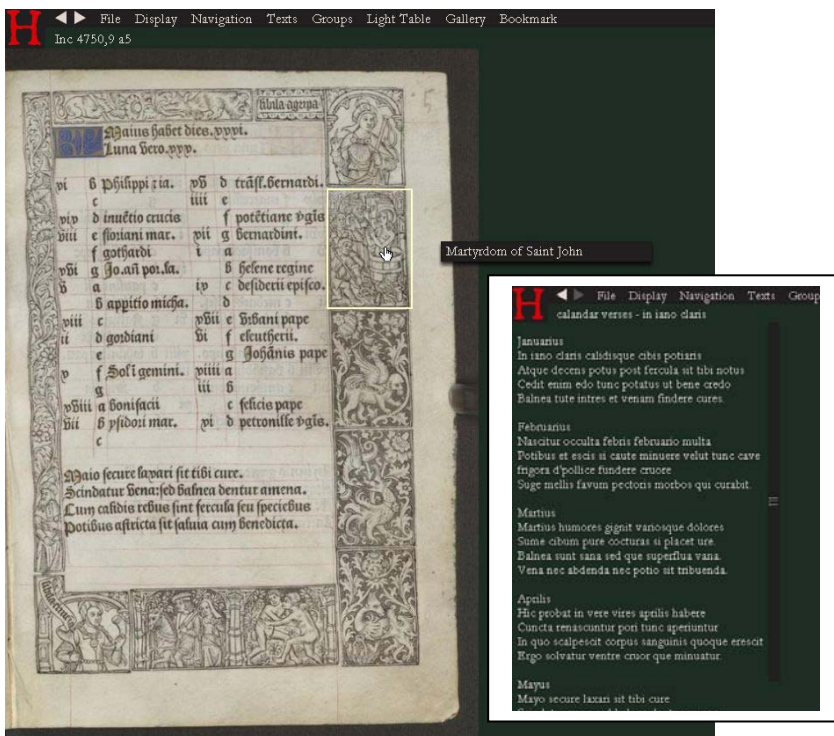 H
File Display Navigation Texts Groups Light Table Gallery Bookmark
Inc 4750,9 a5
sibila agripa
5
Maius habet dies.xxxi.
Luna vero.xxx.
vi b Philippi
c
xix d inuẽtio crucis
viii e floriani mar.
f gothardi
xvi g Jo.añ por.la.
v a
b appitio micha.
xiii c
ii d gordiani
e
x f Soľi gemini.
g
xviii a bonifacii
vii b ysidori mar.
c
xv d trãsl.bernardi.
iiii e
f potẽtiane vgĩs
xii g bernardini.
i a
b helene regine
ix c desiderii episco.
d
xvii e Vrbani pape
vi f eleutherii.
g Johãnis pape
xiiii a
iii b
c felicis pape
xi d petronille vgĩs.
Maio secure laxari sit tibi cure.
Scindatur vena:sed balnea dentur amena.
Cum calidis rebus sint fercula seu speciebus
Potibus astricta sit saluia cum benedicta.
Martyrdom of Saint John
H
File Display Navigation Texts Group
calandar verses - in iano claris
Januarius
In iano claris calidsque cibis potiaris
Atque decens potus post fercula sit tibi notus
Cedit enim edo tunc potatus ut bene credo
Balnea tute intres et venam findere cures.
Februarius
Nascitur occulta febris februario multa
Potibus et escis si caute minuere velut tunc cave
frigora d'pollice fundere cruore
Suge mellis favum pectoris morbos qui curabit.
Martius
Martius humores gignit variosque dolores
Sume cibum pure cocturas si placet ure.
Balnea sunt sana sed que superflua vana.
Vena nec abdenda nec potio sit tribuenda.
Aprilis
Hic probat in vere vires aprilis habere
Cuncta renascuntur pori tunc aperiuntur
In quo scalpescit corpus sanguinis quoque crescit
Ergo solvatur ventre cruor que minuatur.
Mayus
Mayo secure laxari sit tibi cure